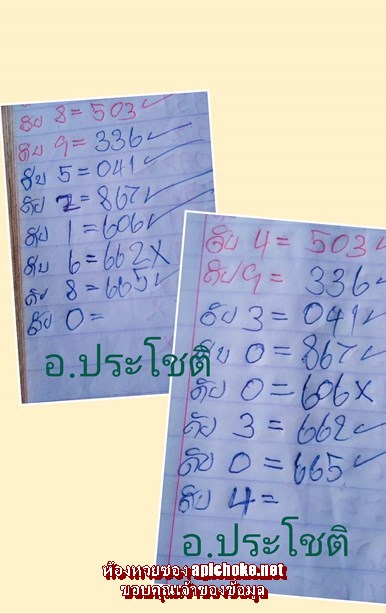 ดับ 8 = 503 ✓
ดับ 9 = 336 ✓
ดับ 5 = 041 ✓
ดับ 2 = 867 ✓
ดับ 1 = 606 ✓
ดับ 6 = 662 X
ดับ 8 = 665 ✓
ดับ 0 =
อ.ประโชติ
ดับ 4 = 503 ✓
ดับ 9 = 336 ✓
ดับ 3 = 041 ✓
ดับ 0 = 867 ✓
ดับ 0 = 606 X
ดับ 3 = 662 ✓
ดับ 0 = 665 ✓
ดับ 4 =
อ.ประโชติ
ห้องหวยซอง apichoke.net
ขอบคุณเจ้าของข้อมูล